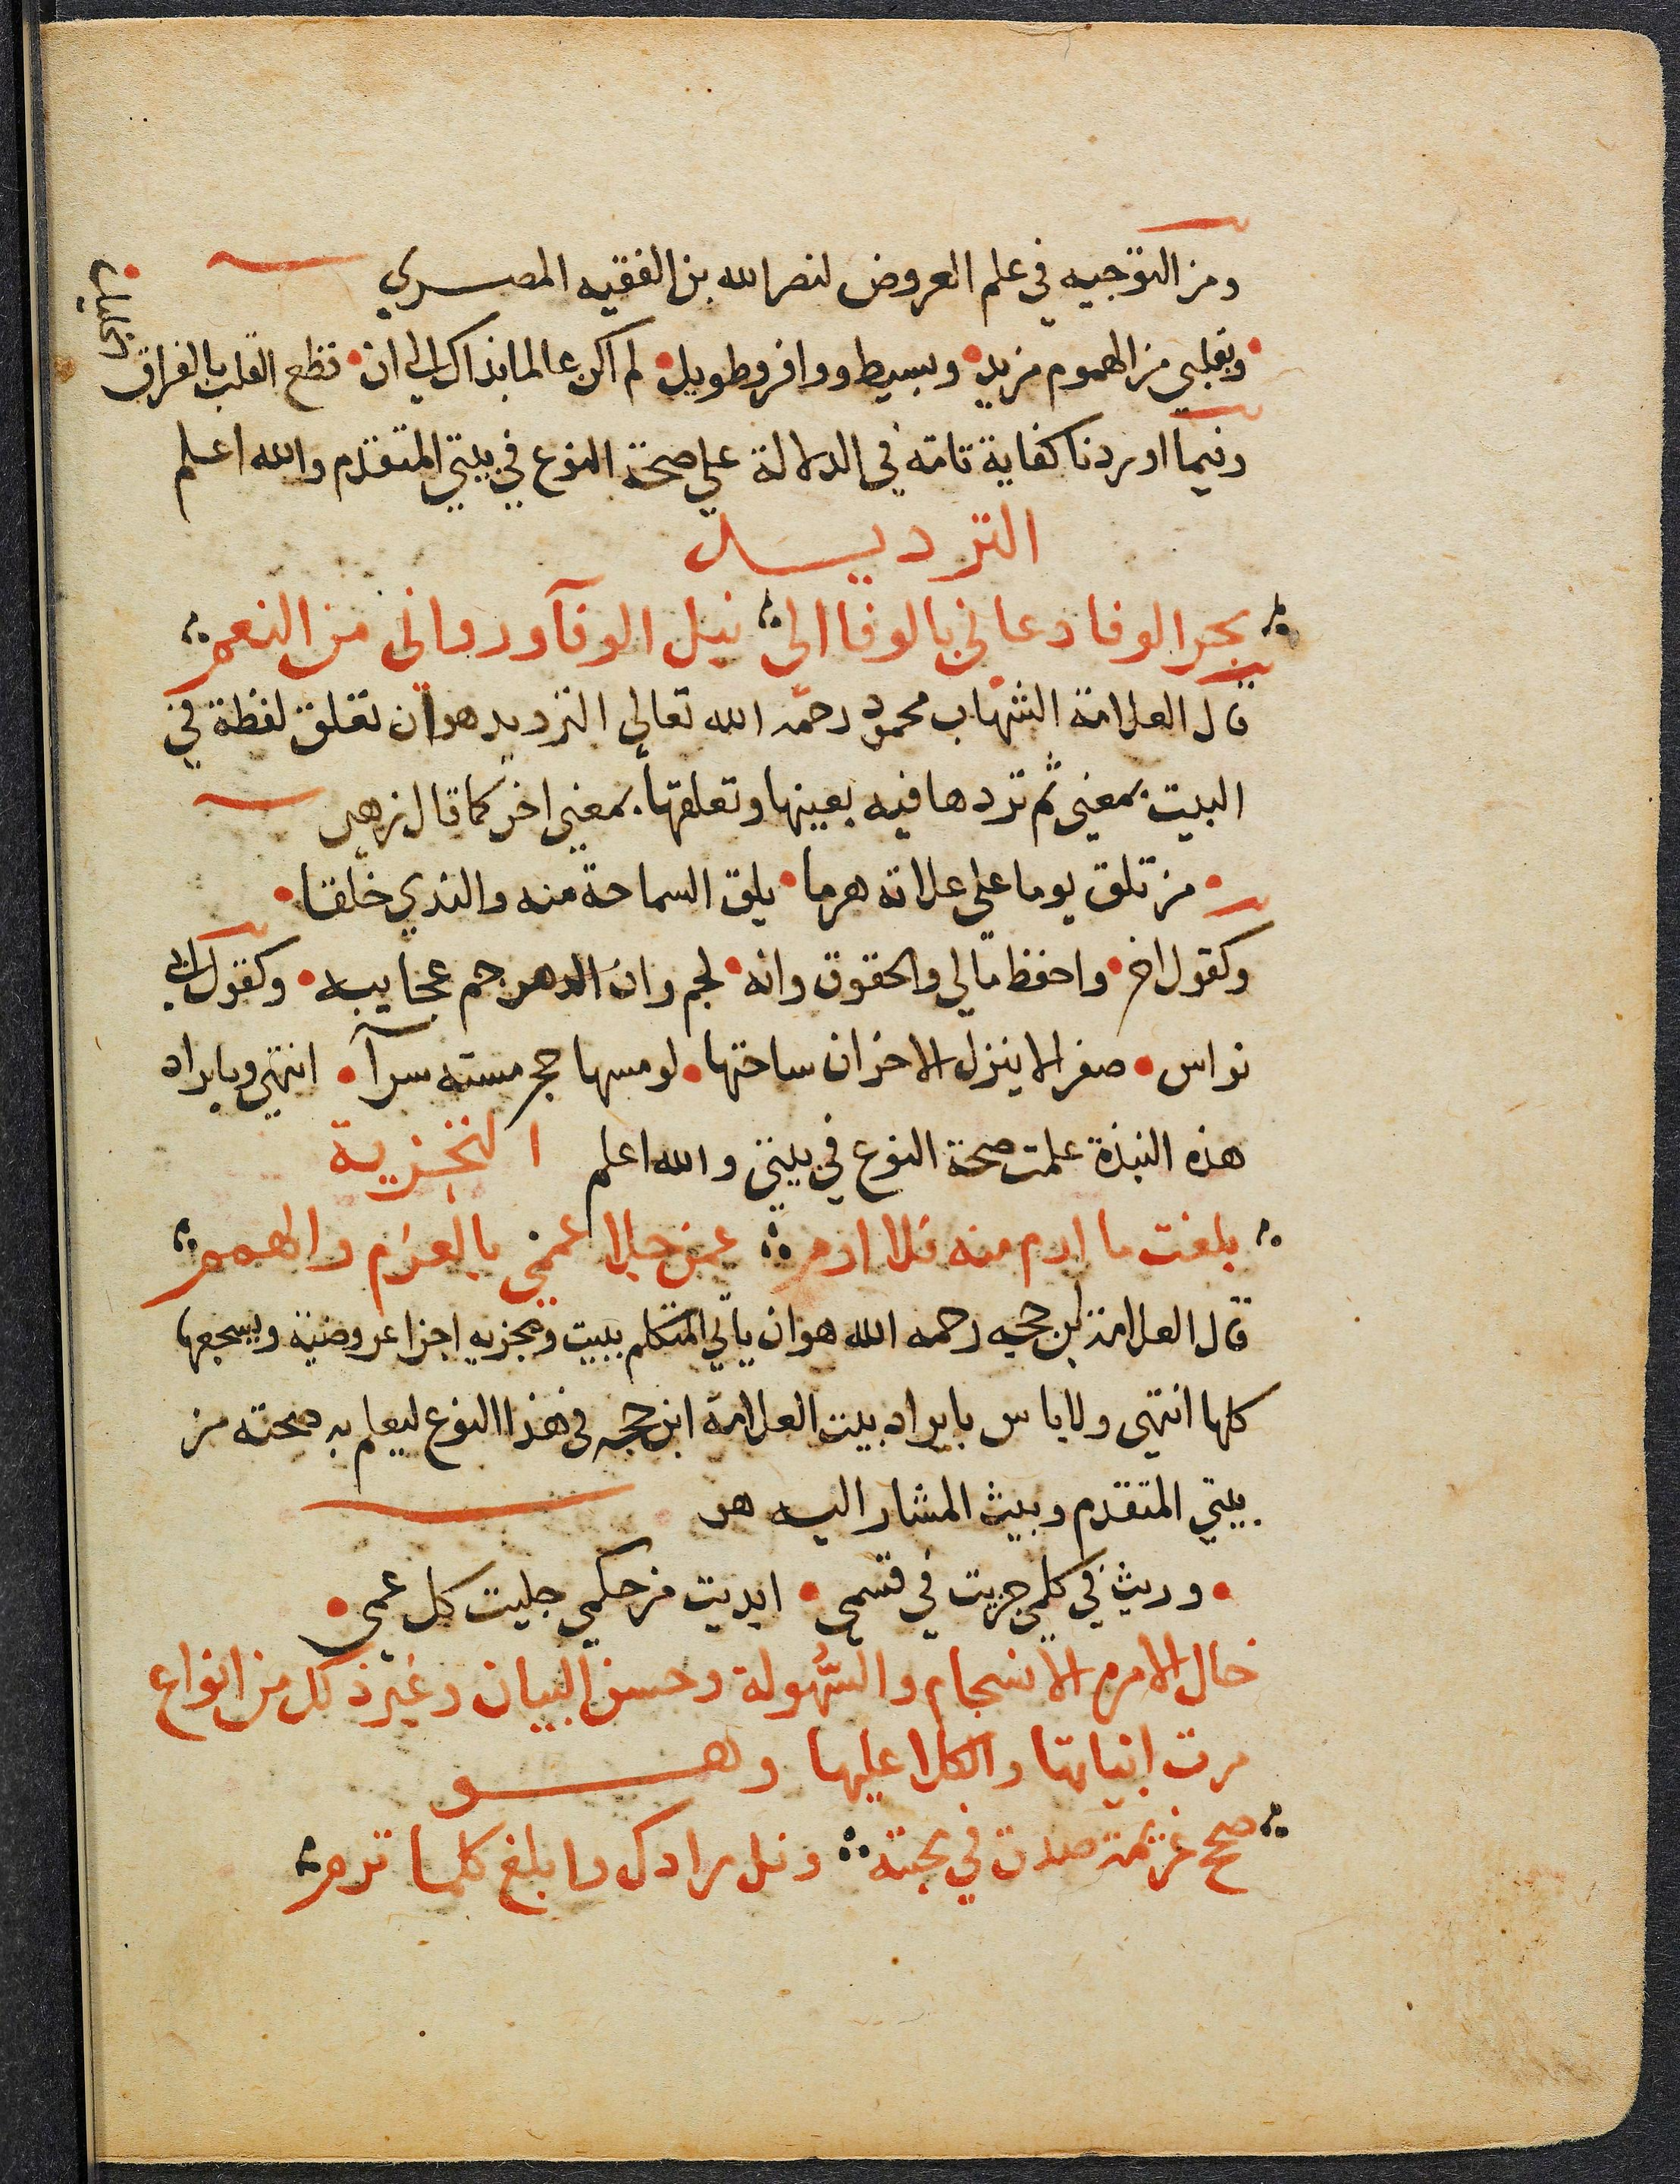 ومن التوجيه في علم العروض لنصر الله بن الفقيه المصري
وبقلبي من الهموم مزيد • وبسيط ووافر وطويل • لم اكن عالما بذاك الي ان • قطع القلب بالفراق
الخليل •
وفيما اوردنا كفاية تامة في الدلالة علي صحة النوع في بيتي المتقدم والله اعلم
الترديد
بحر الوفا دعاني بالوفا الي نيل الوفآ ورواني من النعم
قال العلامة الشهاب محمود رحمه الله تعالي الترديد هو ان تعلق لفظة في
البيت بمعني ثم تردها فيه بعينها وتعلقها بمعني اخر كما قال زهير
• من تلق يوما علي علاته هرما • يلق السماحة منه والندي خلقا •
وكقول اخر • واحفظ مالي والحقوق وانه • لجم وان الدهر جم عجايبه • وكقول ابي
نواس • صفرا لا ينزل الاحزان ساحتها • لو مسها حجر مسته سرآ • انتهي وبايراد
هذه النبذة علمت صحة النوع في بيتي والله اعلم التجزية
بلغت ما ارم منه فلا ارم عمن جلا غممي بالعزم والهمم
قال العلامة ابن حجه رحمه الله هو ان ياتي المتكلم ببيت ويجزيه اجزا عروضية ويسجعها
كلها انتهي ولا باس بايراد بيت العلامة ابن حجه في هذا النوع ليعلم به صحته من
بيتي المتقدم وبيت المشار اليه هو
• وريث في كلمي جزيت في قسمي • ابديت من حكمي جليت كل عمي •
خال الامر م الانسجام والسهولة وحسن البيان وغير ذلك من انواع
مرت ابياتها والكلا عليها وهو
صحح عزيمة صدق في محبته ونل مرادك وابلغ كلما ترم